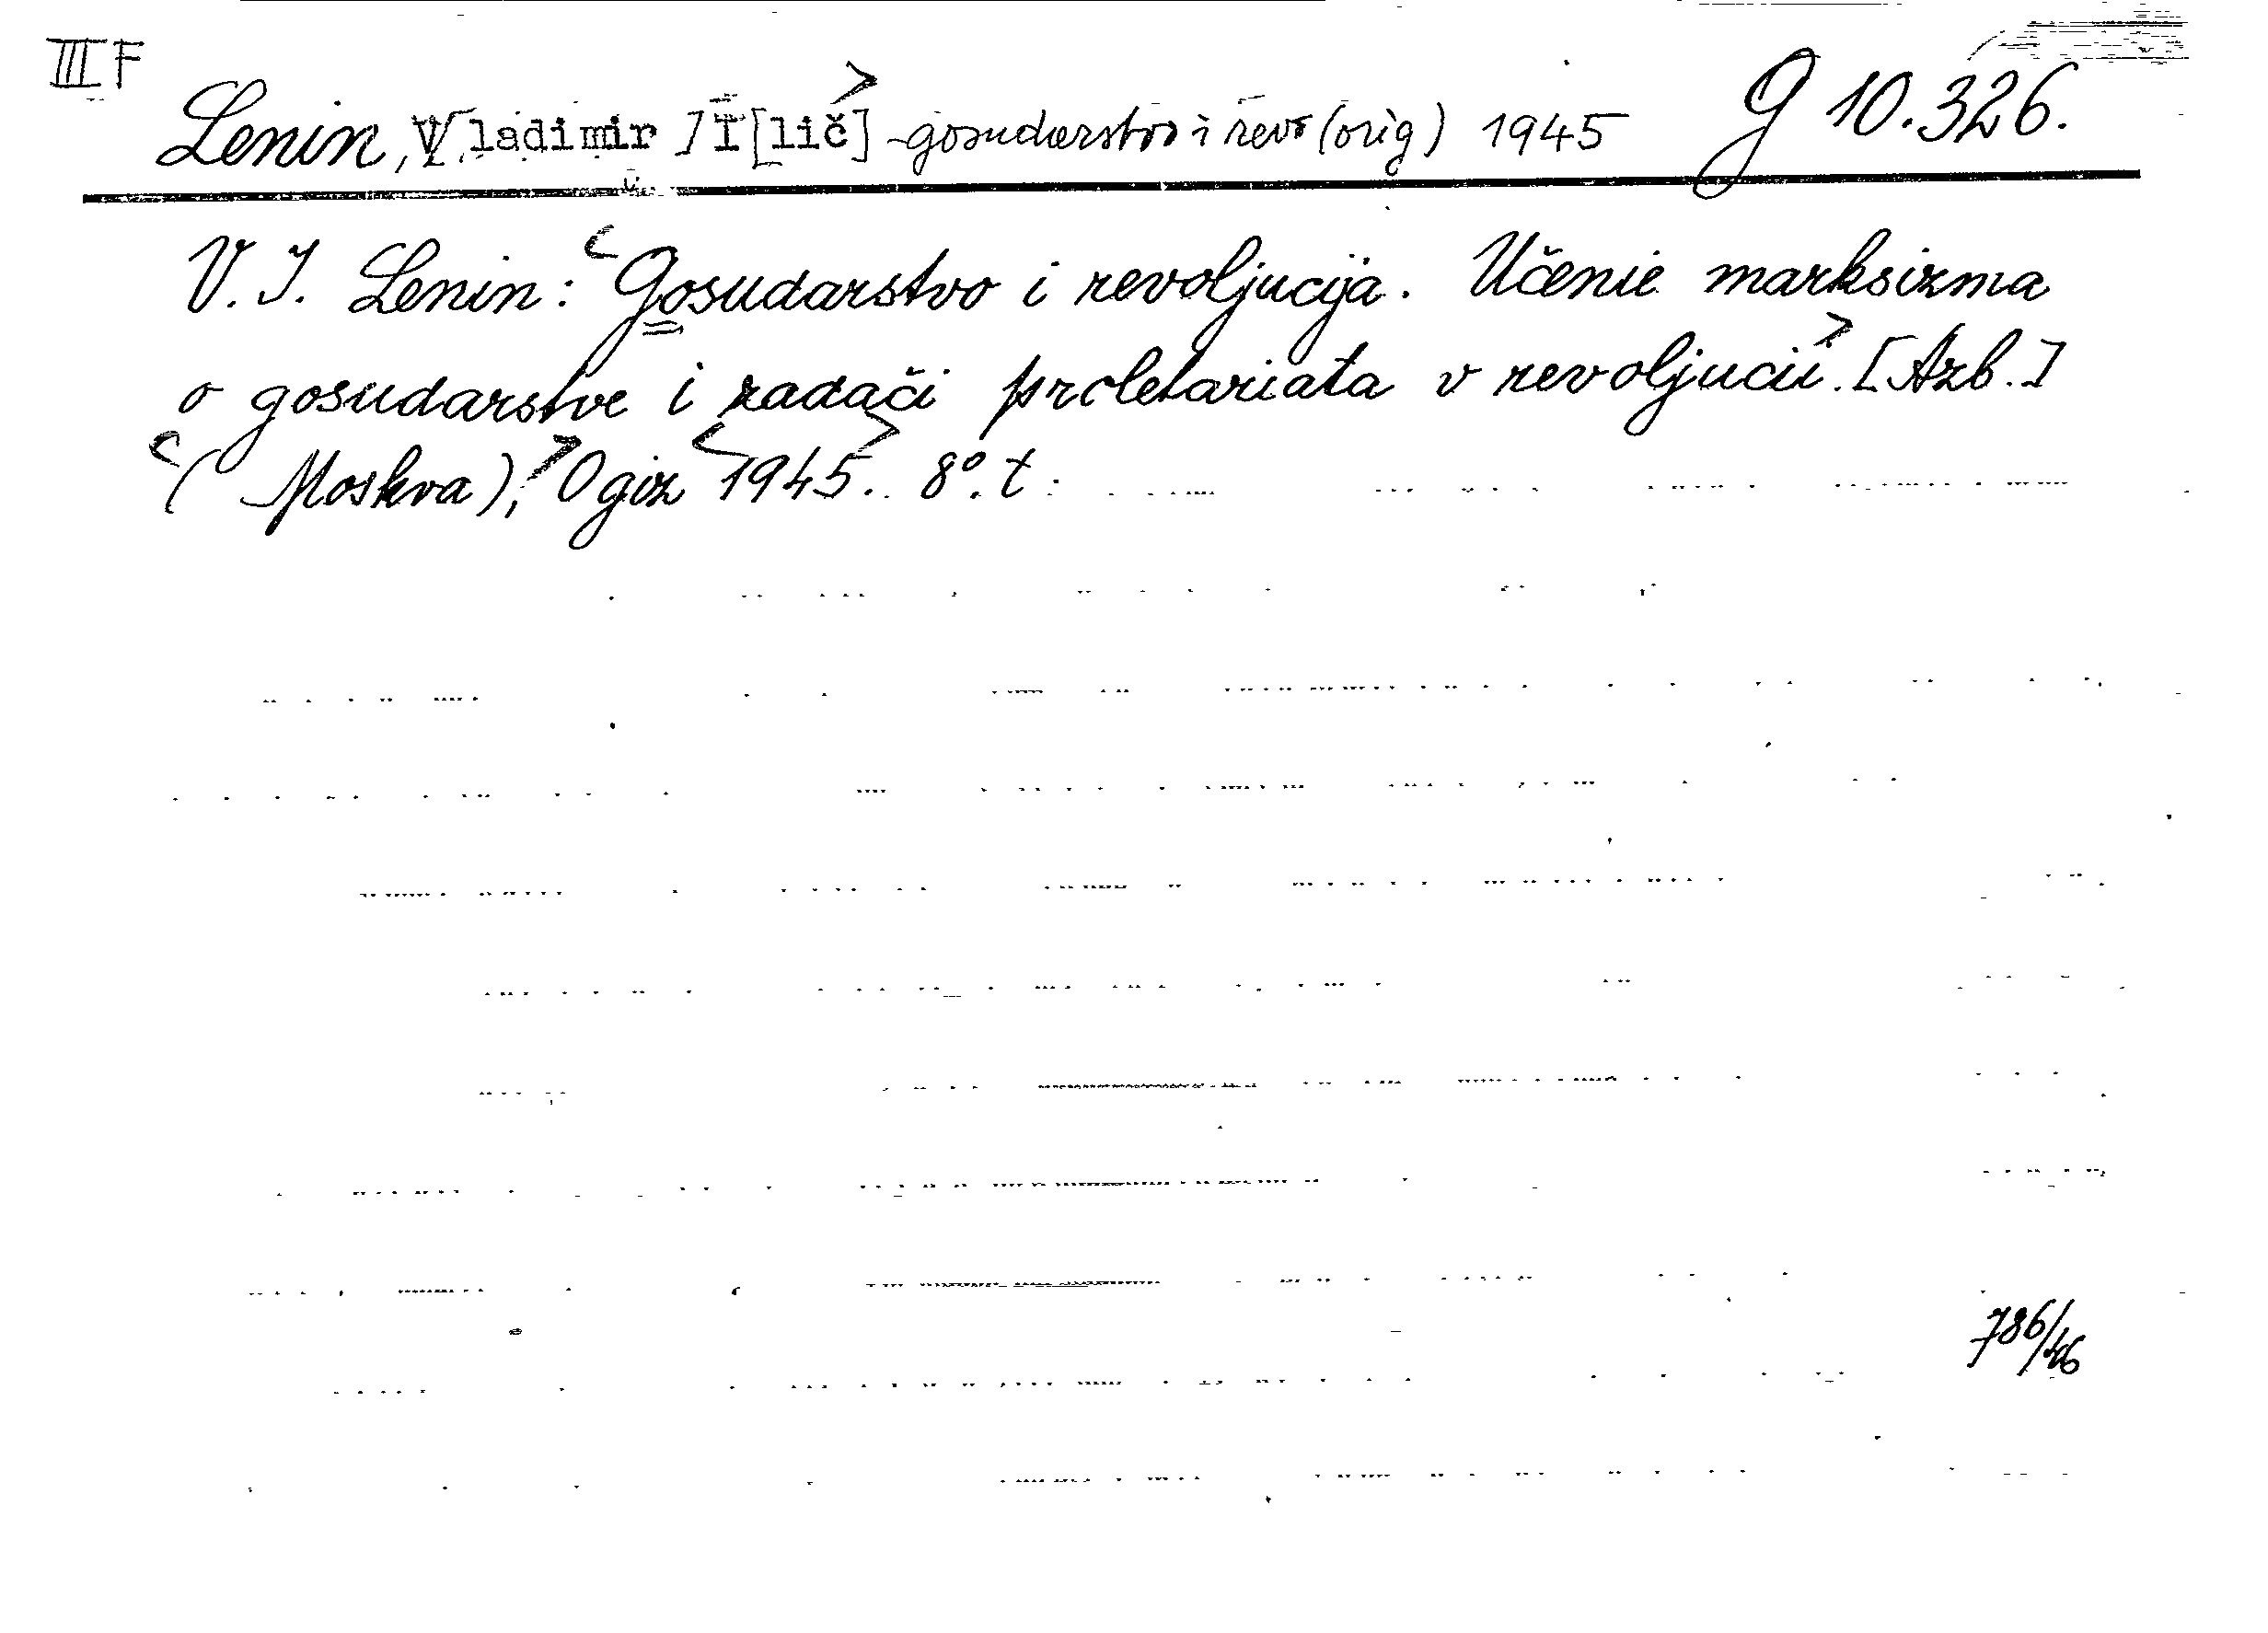 III F
Lenin, V[ladimir] I[lič] - gosudarstvo i revo (orig) 1945 G 10.326.
V. I. Lenin: <Gosudarstvo i revoljucija. Učenie marksizma
o gosudarstve i zadači proletariata v revoljucii>. [Azb.]
<(Moskva),> Ogiz <1945>. 8°. t.
786/46